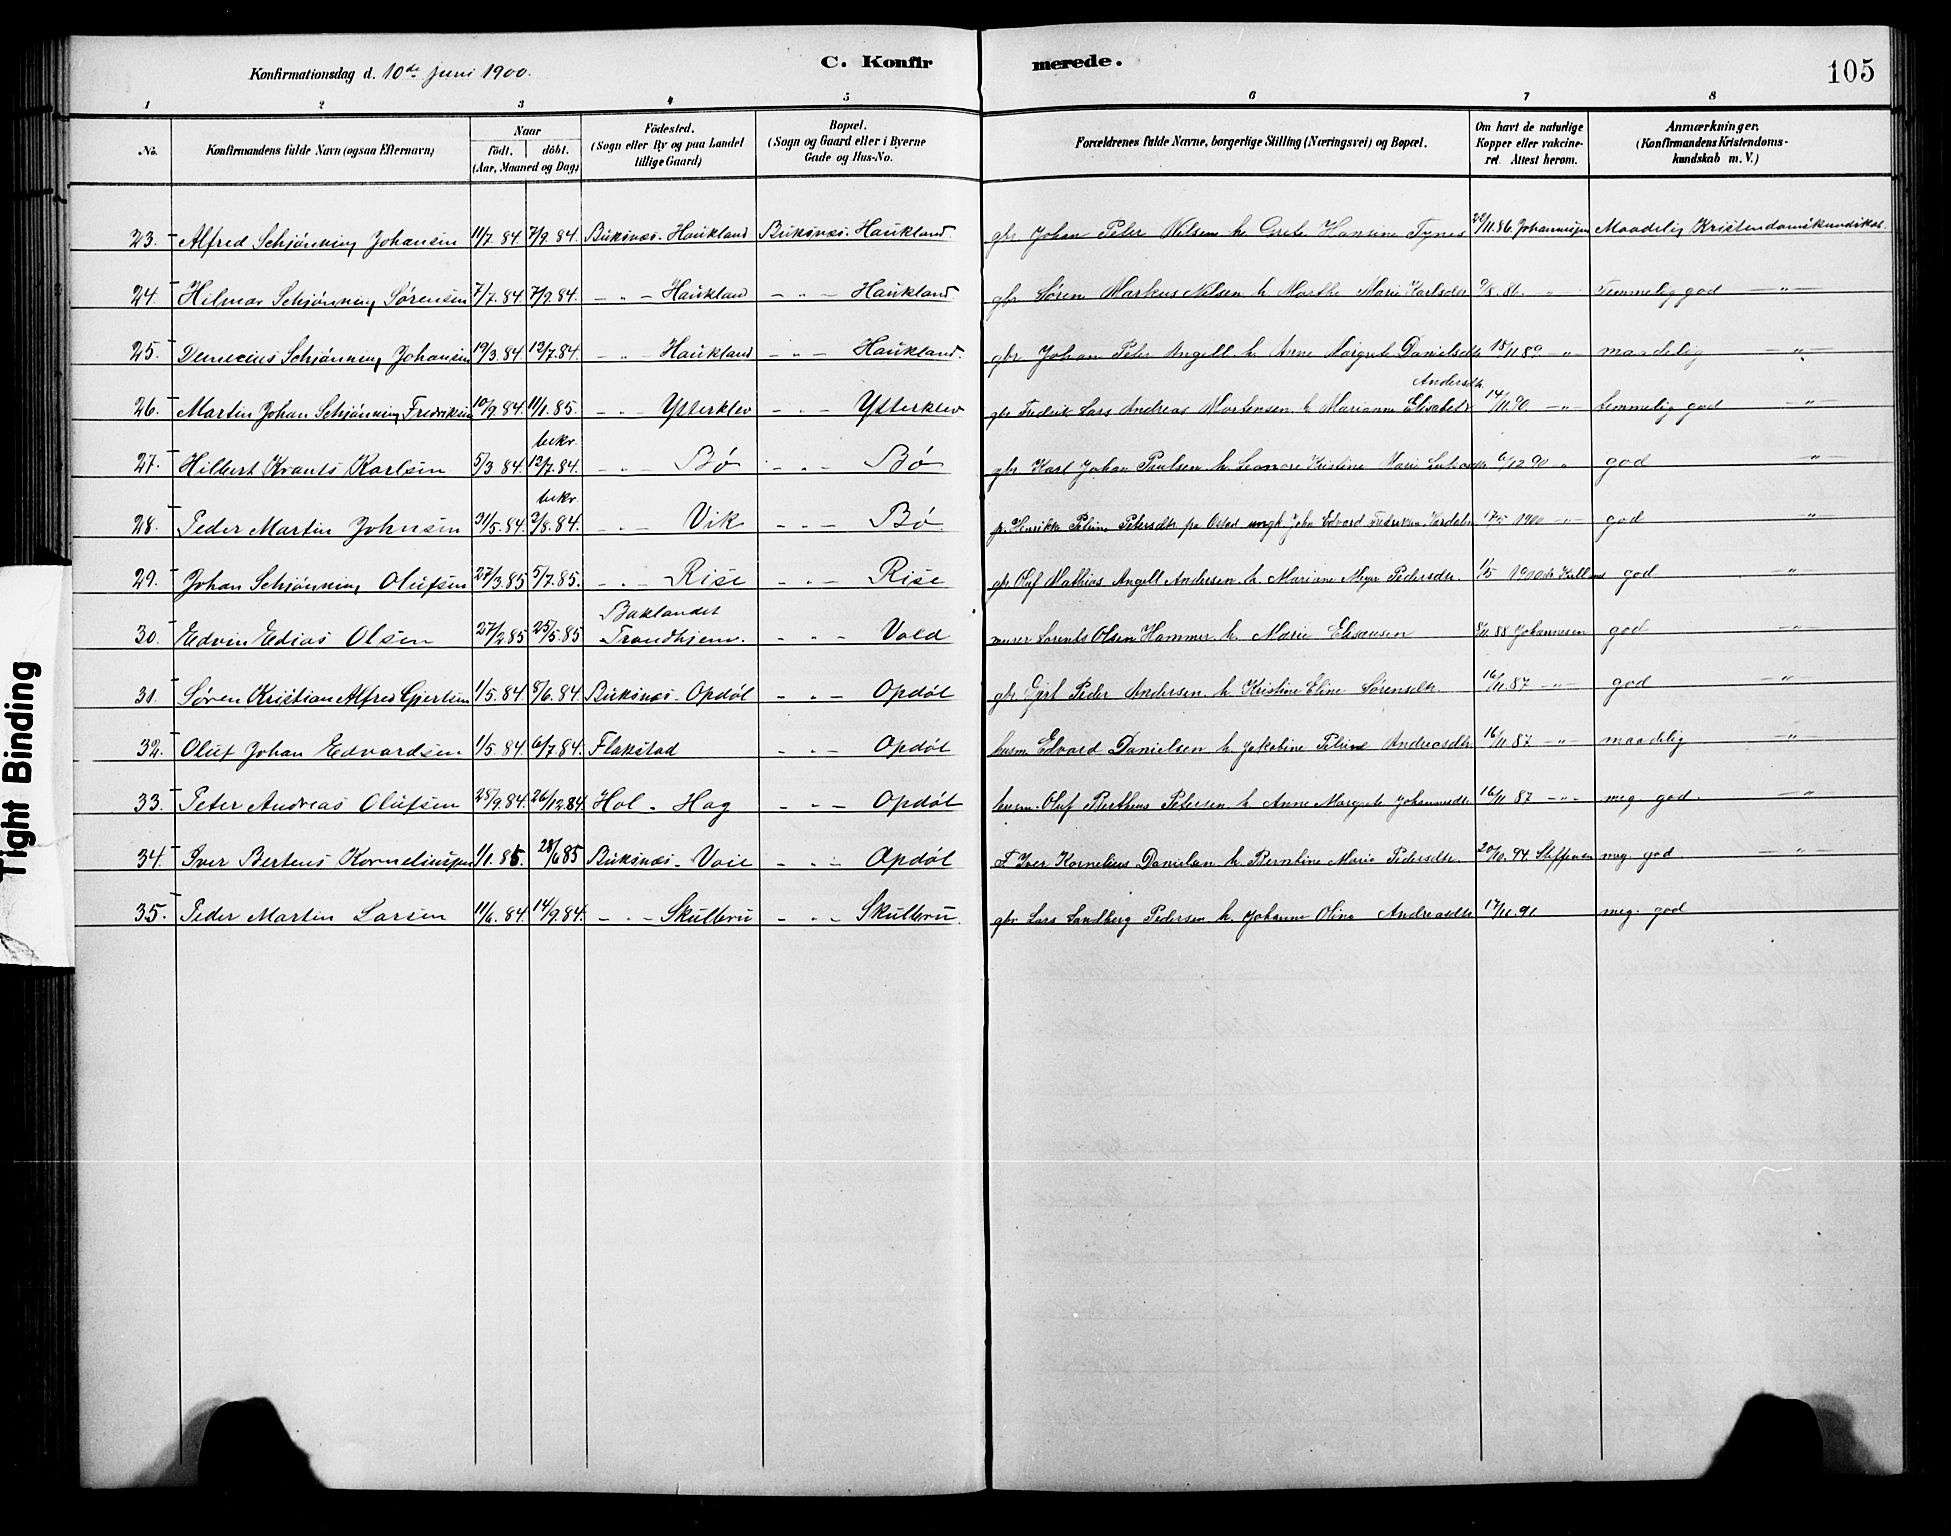 Konfirmationsdag d. 10de Juni 1900.
C. Konfirmerede.
105
1 2 3 4 5 6 7 8
No.
Konfirmandens fulde Navn (ogsaa Efternavn)
Naar
födt. döbt.
(Aar, Maaned og Dag)
Födested.
(Sogn eller By og paa Landet
tillige Gaard)
Bopæl.
(Sogn og Gaard eller i Byerne
Gade og Hus-No.
Forældrenes fulde Navne, borgerlige Stilling (Næringsvei) og Bopæl.
Om havt de naturlige
Kopper eller vakcine-
ret. Attest herom.
Anmærkninger.
(Konfirmandens Kristendoms-
kundskab m. V.)
23. Alfred Schjönning Johansen 11/7.84 7/9.84 Buksnæs. Haukland Buksnæs. Haukland. gbr Johan Peter Nilsen h. Grete Hansine Tynes 22/11.86 Johannesen Maadelig Kristendomskundskab
24. Hilmar Schjönning Sørensen 7/7.84 7/9.84. — " — Haukland — " — Haukland gbr Søren Markus Nilsen h. Marthe Marie Karlsdtr " Temmelig god — " —
25. Schjönning Johansen 19/3.84 12/7.84. — " — Haukland — " — Haukland. gbr Johan Peter Angell h. Anne Margrete Danielsdtr — " — maadelig — " —
Andersdtr.
26. Martin Johan Schjönning Fredriksen 10/9.84. 11/1.85. — " — Ytterklev — " — Ytterklev gbr Fredrik Lars Andreas Mortensen h. Marianne Elisabet 14/11.90. — " — temmelig god — " —
bekr.
27. Hilbert Krants Karlsen 5/3.84 12/7.84. — " — Bö — " — Bö gbr Karl Johan Paulsen h. Leonore Kristine Marie 6/12 90 " god "
bekr
28. Peder Martin Johnsen 31/5.84. 3/8.84. — " — Vik — " — Bö. p. Henrikke Peline Petersdtr pa ungk. John Edvard 1900 — " — god "
29. Johan Schjönning Olufsen 27/3.85 5/7.85. — " — Rise — " — Rise gbr Oluf Mathias Angell Andersen h. Mariane Meyer Pedersdtr. 1/5 1900 god "
Baklandet
30. Edvin Edias Olsen 27/2.85 25/5.85 Trondhjem. — " — Vold murer Lorents Olsen Hammer h. Marie Eliseusen 8/11.88 Johannesen god — " —
31. Søren Kristian Alfred Gjertsen 1/5.84 8/6.84 Buksnæs. Opdöl — " — Opdöl gbr Gjert Peder Andersen h. Kristine Eline Sørensdtr. 16/11.87 — " — god — " —
32. Oluf Johan Edvardsen 1/5.84 6/7.84. Flakstad — " — Opdöl husm Edvard Danielsen h. Jakobine Peline Andreasdtr 16/11.87 — " — maadelig — " —
33. Peter Andreas Olufsen 28/9.84. 26/12.84. Hol - Hag — " — Opdöl husm. Oluf Bertheus Petersen h. Anne Margrete Johannesdtr 16/11 87 — " — meg. god. — " —
34. Iver Berteus Korneliussen 1/1.85. 28/6 85 Buksnæs. Voie — " — Opdöl F. Iver Kornelius Danielsen h. Berntine Marie Pedersdtr. 20/10.94. Steffensen meg. god. — " —
35. Peder Martin Larsen 11/6.84. 14/9.84. — " — Skulbru — " — Skulbru. gbr Lars Sandberg Pedersen h. Johanne Olina Andreasdtr 17/11.91 meg. god
Tight Binding